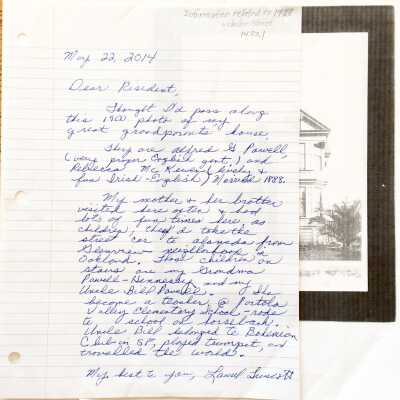 Information related to 1928
Webster Street
May 22, 2014
Dear Resident,
Thought I'd pass along
this 1900 photo of my
great grandparents house.
They are Alfred G Powell,
(very proper English gent.) and
Rebecca
fun Irish-English) Married 1888.
My mother & her brother
visited here often & had
lots of fun times here, as
children; they'd take the
street car to Alameda from
Glenview neighborhood in
Oakland. Those children on
stairs are my Grandma
Powell-Hennessey and my
Uncle Bill Powell. She
became a teacher @ Portola
Valley Elementary School - rode
to school on horseback.
Uncle Bill belonged to Bohemian
Club in SF, played trumpet, and
travelled the world.
My best to you, Laurel